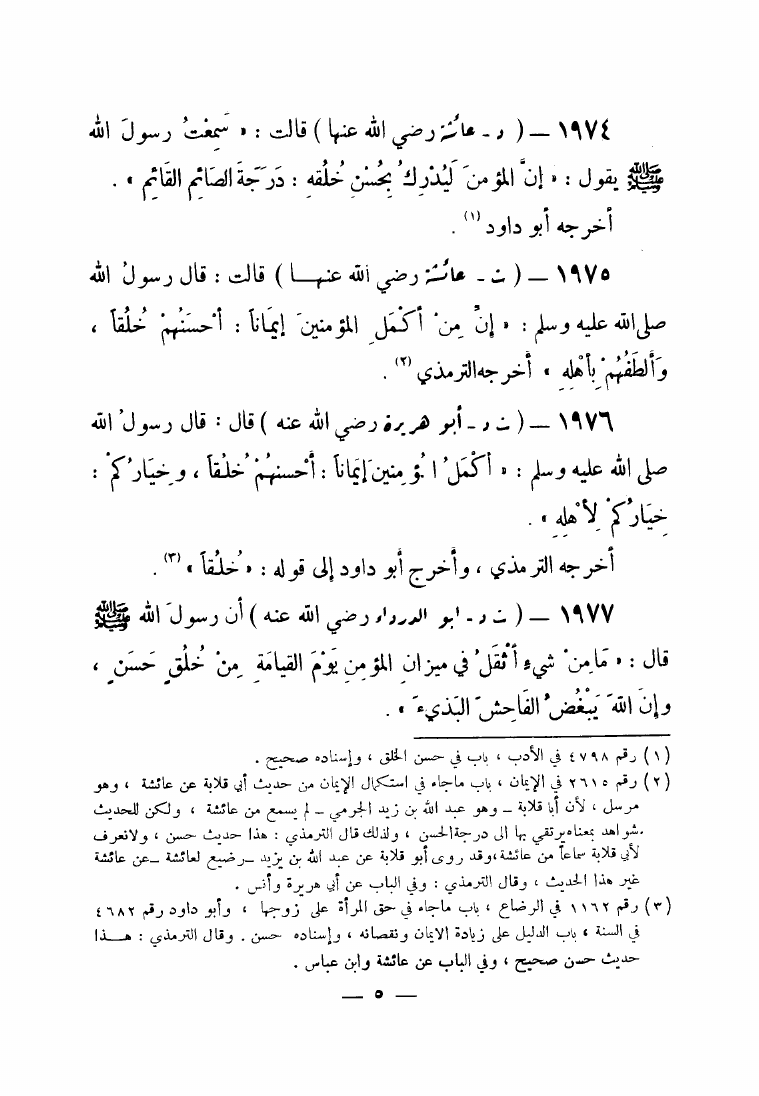 ١٩٧٤ – ( د - عائشة رضي الله عنها ) قالت : « سَمِعْتُ رسولَ الله
ﷺ يقول : « إنَّ المؤمنَ لَيُدْرِكُ بِحُسْنِ خُلُقهِ : دَرَجَةَ الصَائِمِ القَائِمِ » .
أخرجه أبو داود (١) .
١٩٧٥ – ( ت - عائشة رضي الله عنهـــا ) قالت : قال رسولُ الله
صلى الله عليه وسلم : « إنَّ مِنْ أكْمَلِ المؤمنينَ إيمَاناً : أحْسَنُهُمْ خُلُقاً ،
وَألطَفُهُمْ بِأهْلِهِ » أخرجه الترمذي (٢) .
١٩٧٦ – ( ت د - أبو هريرة رضي الله عنه ) قال : قال رسولُ الله
صلى الله عليه وسلم : « أكْمَلُ المؤمنينَ إيَمَاناً : أحْسنهُمْ خُلقاً ، وخيَارُكمْ :
خِيَارُكمْ لِأهْلِهِ » .
أخرجه الترمذي ، وأخرج أبو داود إلى قوله : « خُلُقاً » (٣) .
١٩٧٧ – ( ت د - ابو الدرداء رضي الله عنه ) أن رسولَ الله ﷺ
قال : « مَا مِنْ شيءٍ أثْقَلُ في ميزانِ المؤمنِ يَوْمَ القيامَةِ مِنْ خُلُقٍ حَسَنٍ ،
وإنَ اللهَ يَبْغُضُ الفَاحِشَ البَذيءَ » .
(١) رقم ٤٧٩٨ في الأدب ، باب في حسن الخلق ، وإسناده صحيح .
(٢) رقم ٢٦١٥ في الإيمان ، باب ماجاء في استكمال الإيمان من حديث أبي قلابة عن عائشة ، وهو
مرسل ، لأن أبا قلابة – وهو عبد الله بن زيد الجرمي – لم يسمع من عائشة ، ولكن للحديث
شواهد بمعناه يرتقي بها الى درجة الحسن ، ولذلك قال الترمذي : هذا حديث حسن ، ولانعرف
لأبي قلابة سماعاً من عائشة ، وقد روى أبو قلابة عن عبد الله بن يزيد – رضيع لعائشة – عن عائشة
غير هذا الحديث ، وقال الترمذي : وفي الباب عن أبي هريرة وأنس .
(٣) رقم ١١٦٢ في الرضاع ، باب ماجاء في حق المرأة على زوجها ، وأبو داود رقم ٤٦٨٢
في السنة ، باب الدليل على زيادة الايمان ونقصانه ، وإسناده حسن . وقال الترمذي : هـــذا
حديث حسن صحيح ، وفي الباب عن عائشة وابن عباس .
– ٥ –